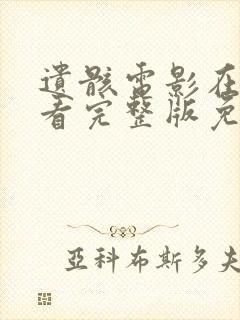 遺骸電影在
看完整版免
亞科布斯多夫